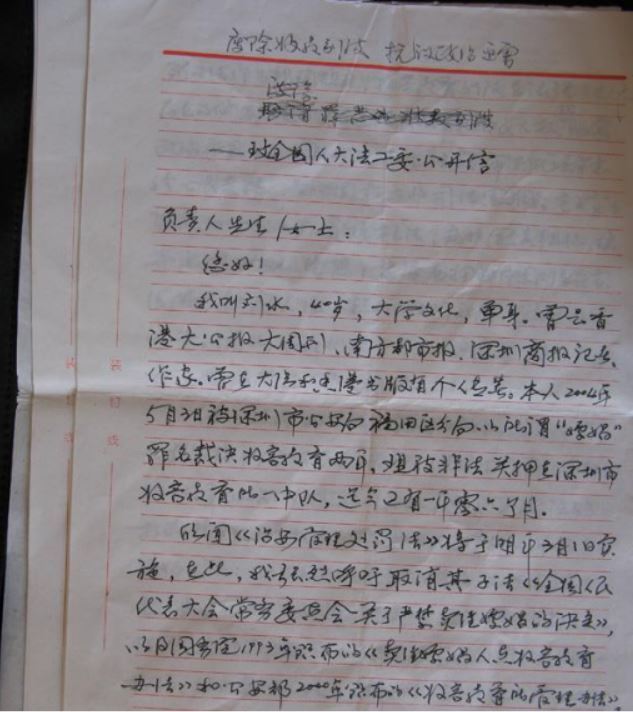 废除收教制度 抗议政治迫害
——致全国人大法工委公开信
负责人先生/女士：
您好！
我叫刘水，40岁，大学文化，单身。曾云香
港大公报大周刊、南方都市报、深圳商报记者、
作家。曾在大陆和香港出版有个人专著。本人2004年
5月3日被深圳市公安局福田区分局以所谓“嫖娼”
罪名裁决收容教育两年，现被非法关押在深圳市
收容教育所一中队，迄今已有一年零六个月。
欣闻《治安管理处罚法》将于明年3月1日实
施，在此，我强烈呼吁取消其子法《全国人民
代表大会常务委员会关于严禁卖淫嫖娼的决定》，
以及国务院1993年颁布的《卖淫嫖娼人员收容教育
办法》和公安部2000年颁布的《收容教育所管理办法》。